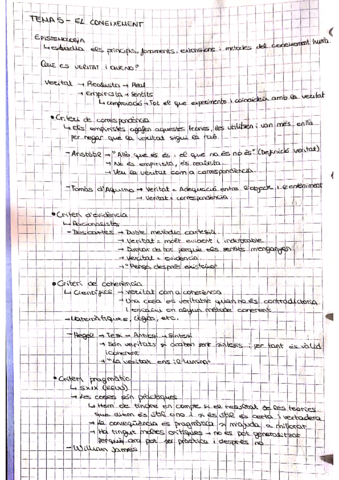 TEMA 5 - EL CONEIXEMENT
EPISTEMOLOGIA
↳ estudia els principis, fonaments, extensions i mètodes del coneixement humà
QUÈ ÉS VERITAT I QUÈ NO?
Veritat → Producte → Real
→ empirista → sentits
↳ comprovació → Tot el que experiments i coincideix amb la veritat
• Criteri de correspondència
↳ Els empiristes agafen aquestes teories, les utilitzen i van més enllà
per negar que la veritat sigui la raó
- Aristòtil → "Allò que és és i el que no és no és" (Definició veritat)
→ No és empirista, és realista
→ Veu la veritat com a correspondència.
- Tomàs d'Aquino → Veritat = Adequació entre l'objecte i l'enteniment
→ Veritat i correspondència
• Criteri d'evidència
↳ Racionalistes
- Descartes → Dubte metòdic cartesià
→ Veritat = molt evident i indubtable
→ Dubtar de tot perquè els sentits menganyen
→ Veritat = evidència
→ "Penso després existeixo"
• Criteri de coherència
↳ Científics → veritat com a coherència
→ Una cosa és veritable quan no és contradictòria
i encaixa en algun mètode coherent
- Matemàtiques, lògica, etc.
- Hegel → Tesi → Antítesi → Síntesi
→ Són veritats si acaben sent síntesi i per tant és vàlid
i coherent
→ "La veritat ens il·lumina"
• Criteri pragmàtic
↳ S.XIX (EEUU)
→ Les coses són pràctiques
↳ Hem de tindre en compte si el resultat de les teories
que tenim és útil o no i si és útil és certa i vertadera
→ La conseqüència és pragmàtica si m'ajuda a millorar.
→ Ha tingut moltes crítiques → no es pot generalitzar
perquè ara pot ser pràctica i després no
- William James